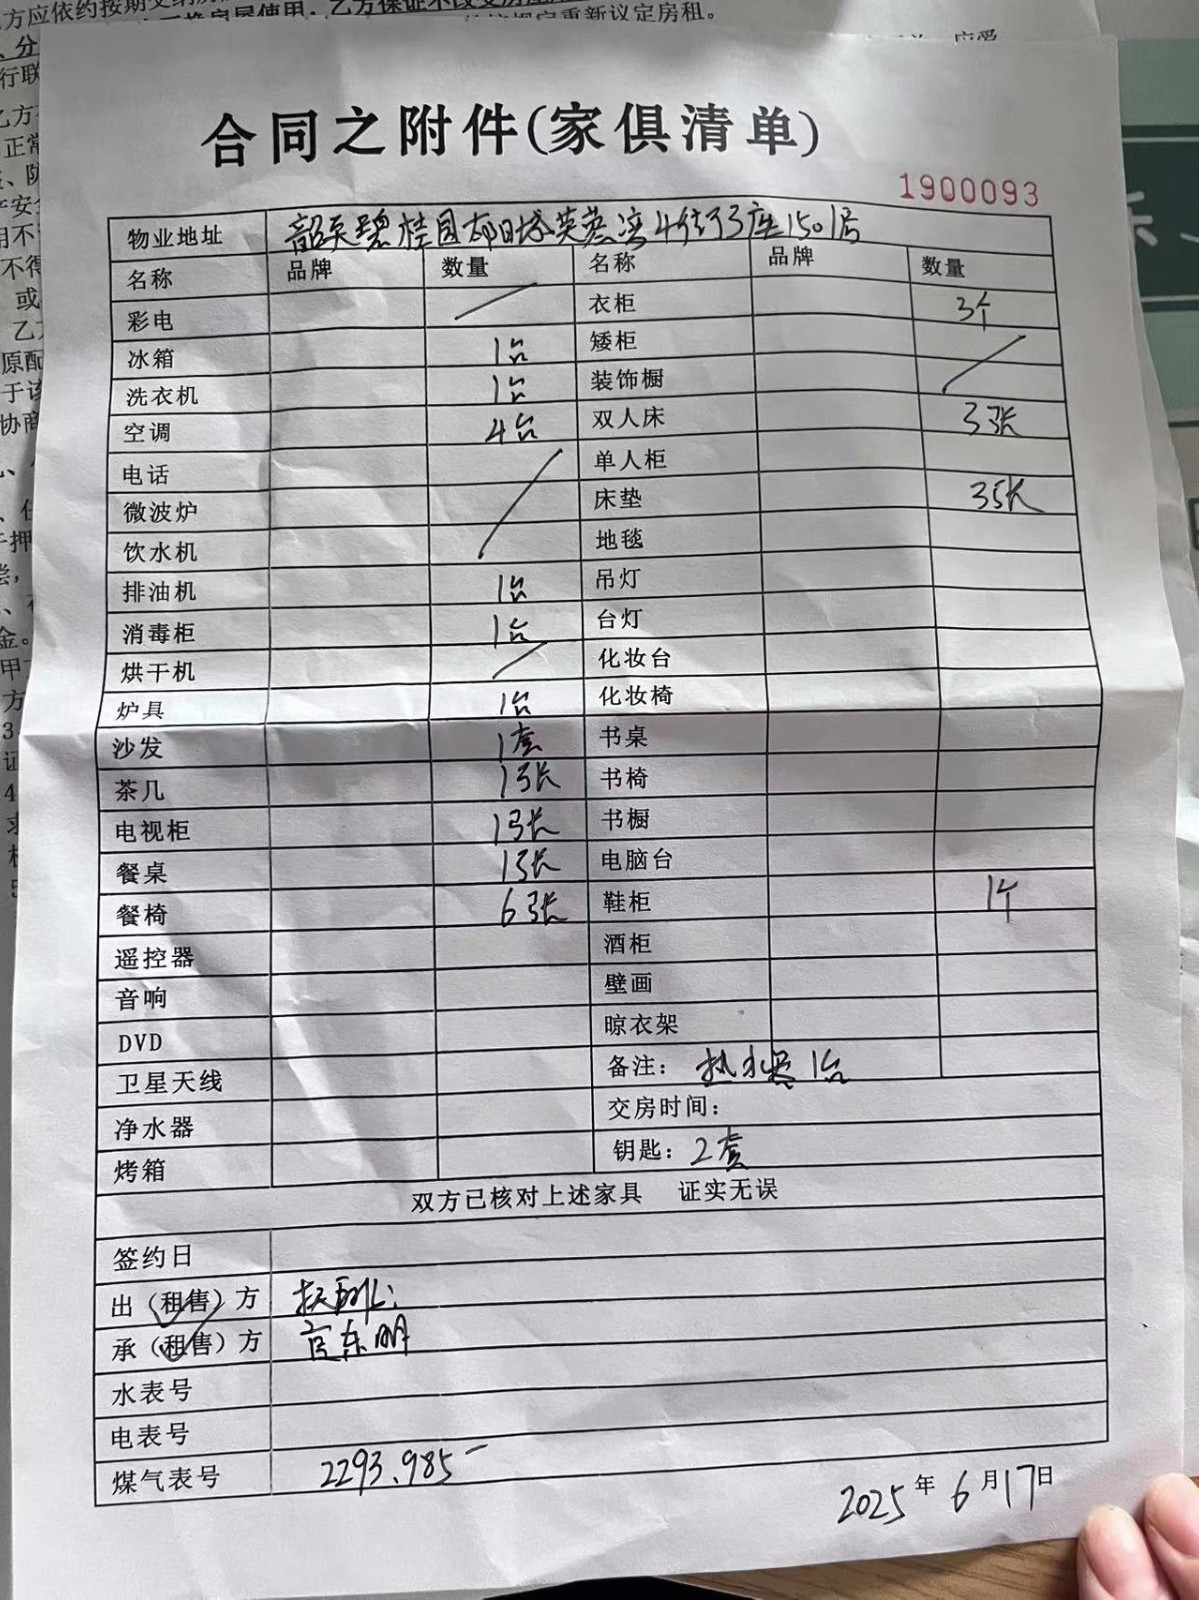 方应依约按期交纳房
乙方保证不改变房屋
重新议定房租。
合同之附件(家俱清单)
1900093
物业地址 韶关碧桂园 芙蓉湾4街3座1501房
名称 品牌 数量 名称 品牌 数量
彩电 衣柜 3个
冰箱 1台 矮柜
洗衣机 1台 装饰橱
空调 4台 双人床 3张
电话 单人柜
微波炉 床垫 3张
饮水机 地毯
排油机 1台 吊灯
消毒柜 1台 台灯
烘干机 化妆台
炉具 1台 化妆椅
沙发 1套 书桌
茶几 1张 书椅
电视柜 1张 书橱
餐桌 1张 电脑台
餐椅 6张 鞋柜 1个
遥控器 酒柜
音响 壁画
DVD 晾衣架
卫星天线 备注: 热水器1台
净水器 交房时间:
烤箱 钥匙: 2套
双方已核对上述家具 证实无误
签约日
出(租售)方
承(租售)方 官东明
水表号
电表号
煤气表号 2293.985
2025年6月17日